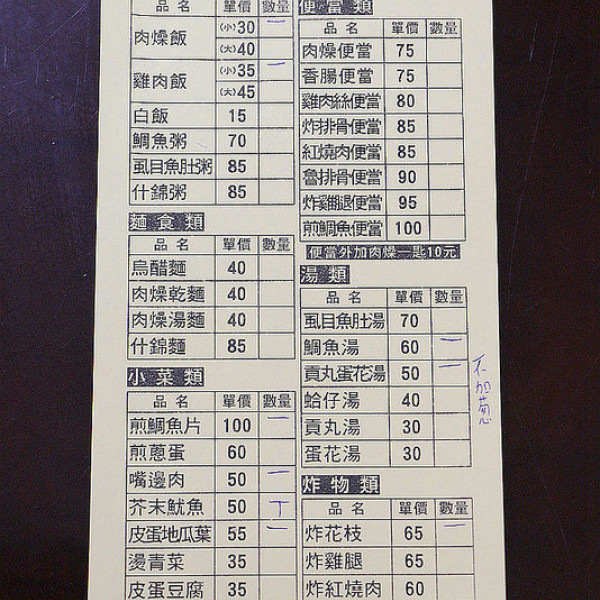 品名 單價 數量
肉燥飯 (小)30 一
(大)40
雞肉飯 (小)35 一
(大)45
白飯 15
鯛魚粥 70
虱目魚肚粥 85
什錦粥 85
麵食類
品名 單價 數量
烏醋麵 40
肉燥乾麵 40
肉燥湯麵 40
什錦麵 85
小菜類
品名 單價 數量
煎鯛魚片 100 一
煎蔥蛋 60
嘴邊肉 50 一
芥末魷魚 50 丅
皮蛋地瓜葉 55 一
燙青菜 35
皮蛋豆腐 35
便當類
品名 單價 數量
肉燥便當 75
香腸便當 75
雞肉絲便當 80
炸排骨便當 85
紅燒肉便當 85
魯排骨便當 90
炸雞腿便當 95
煎鯛魚便當 100
便當外加肉燥一匙10元
湯類
品名 單價 數量
虱目魚肚湯 70
鯛魚湯 60 一
貢丸蛋花湯 50 一
蛤仔湯 40
貢丸湯 30
蛋花湯 30
不加葱
炸物類
品名 單價 數量
炸花枝 65 一
炸雞腿 65
炸紅燒肉 60